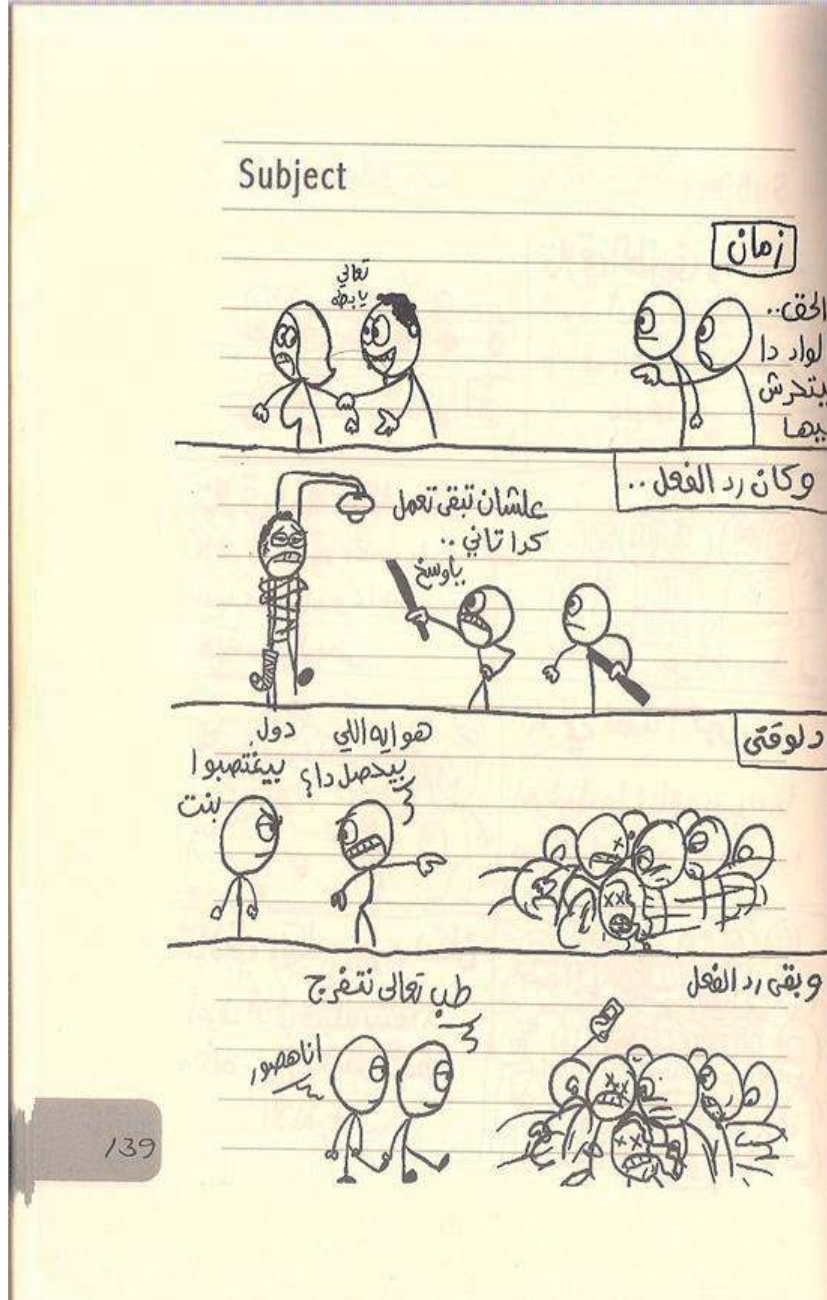 Subject
زمان
الحق..
لواد دا
بيتحرش
بيها
تعالي
يا بطه
وكان رد الفعل..
علشان تبقى تعمل
كدا تاني..
ياوسخ
دلوقتى
هو ايه اللي
بيحصل دا؟
دول
بيغتصبوا
بنت
وبقى رد الفعل
طب تعالى نتفرج
انا هصور
139